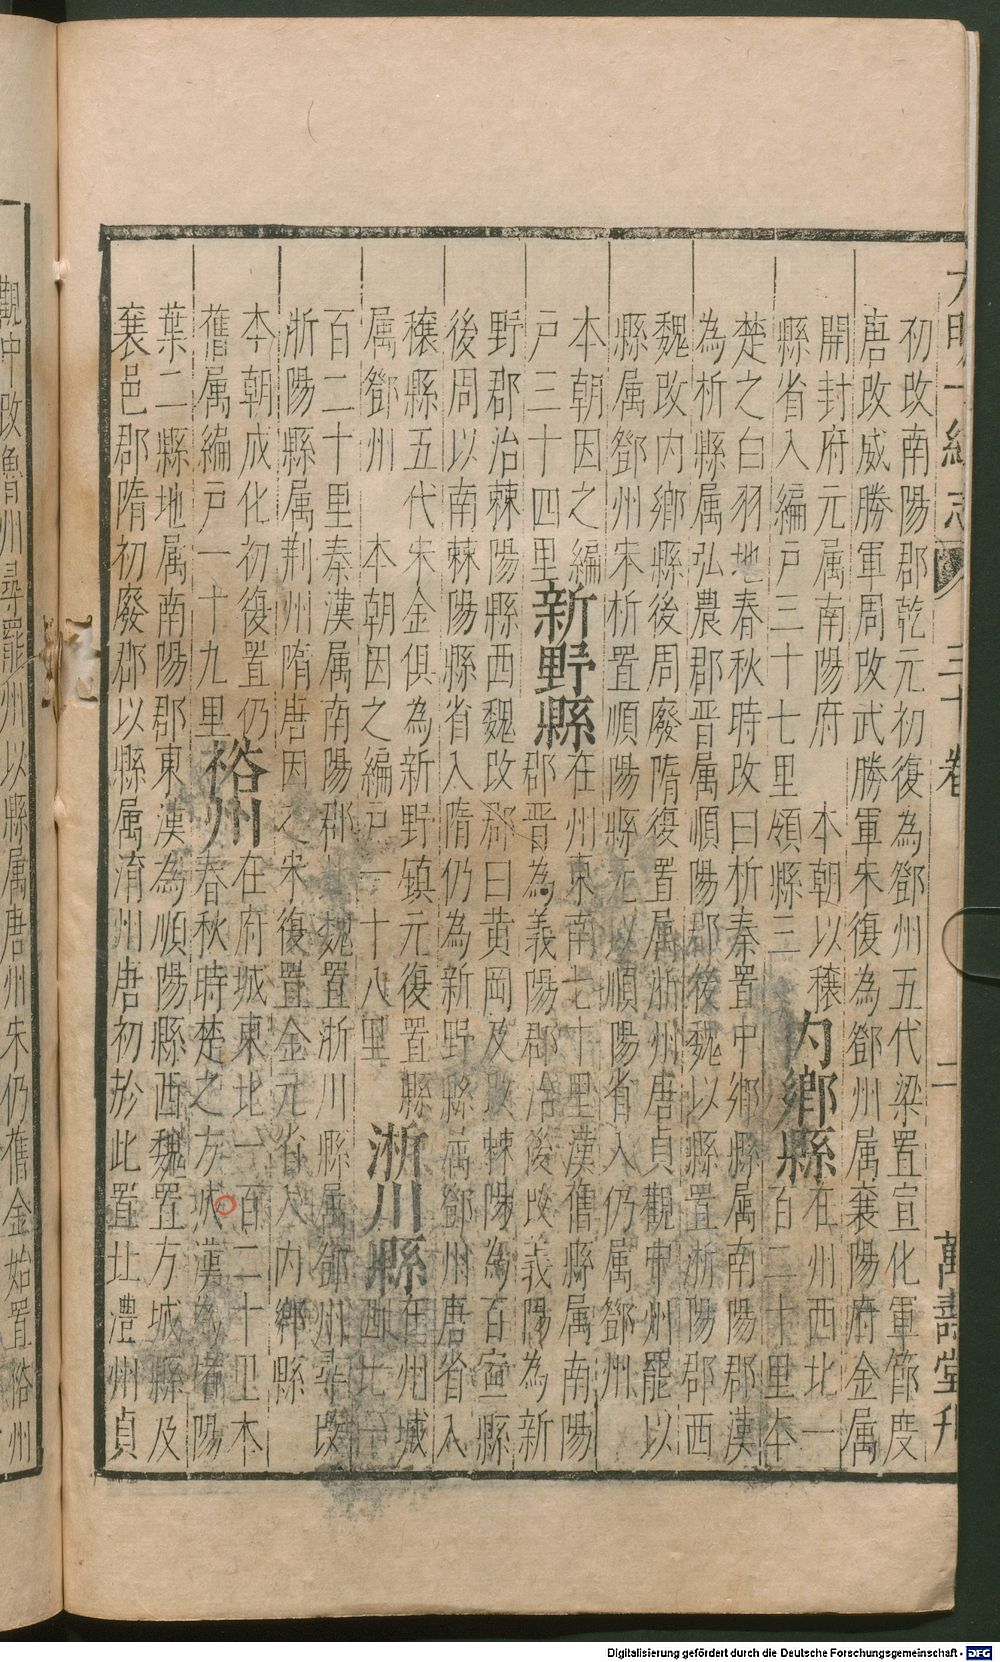 大明一統志 三十卷 二 萬壽堂刊
初改南陽郡乾元初復為鄧州五代梁置宣化軍節度
唐改威勝軍周改武勝軍宋復為鄧州属襄陽府金属
開封府元属南陽府 本朝以穰
縣省入編戸三十七里領縣三 内鄉縣 在州西北一
百二十里本
楚之白羽地春秋時改曰析秦置中鄉縣属南陽郡漢
為析縣属弘農郡晋属順陽郡後魏以縣置淅陽郡西
魏改内鄉縣後周廢隋復置属淅州唐貞觀中州罷以
縣属鄧州宋析置順陽縣元以順陽省入仍属鄧州
本朝因之編
戸三十四里 新野縣 在州東南七十里漢舊縣属南陽
郡晋為義陽郡治後改義陽為新
野郡治棘陽縣西魏改郡曰黄岡及改棘陽為百寧縣
後周以南棘陽縣省入隋仍為新野縣属鄧州唐省入
穰縣五代宋金俱為新野鎮元復置縣
属鄧州 本朝因之編戸一十八里 淅川縣 在州城
西北一
百二十里秦漢属南陽郡 魏置淅川縣属鄧州尋改
淅陽縣属荆州隋唐因之宋復置金元省入内鄉縣
本朝成化初復置仍
舊属編戸一十九里 裕州 在府城東北一百二十里本
春秋時楚之方城漢為堵陽
葉二縣地属南陽郡東漢為順陽縣西魏置方城縣及
襄邑郡隋初廢郡以縣属淯州唐初於此置北澧州貞
觀中改魯州尋罷州以縣属唐州宋仍舊金始置裕州
Digitalisierung gefördert durch die Deutsche Forschungsgemeinschaft - DFG